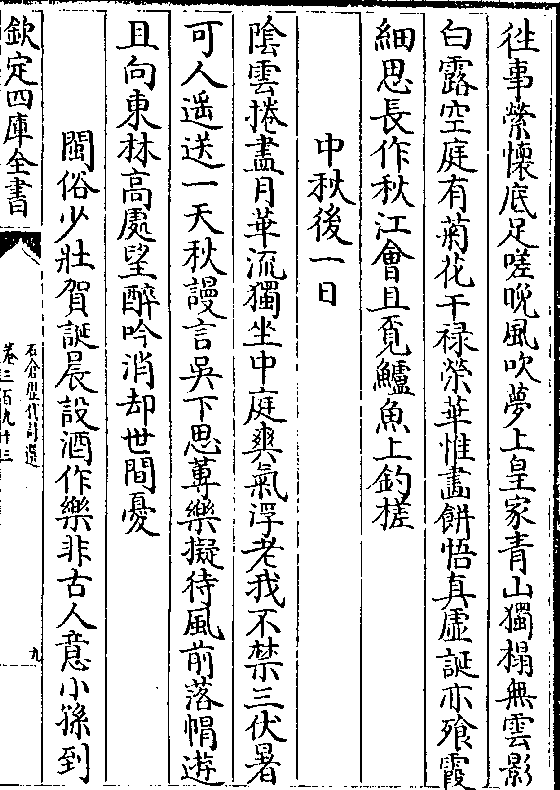 徃事縈懷底足嗟晚風吹夢上皇家青山獨榻無雲影
白露空庭有菊花干禄榮華惟畫餅悟真虚誕亦飱霞
細思長作秋江㑹且覓鱸魚上釣槎
中秋後一日
陰雲捲盡月華流獨坐中庭爽氣浮老我不禁三伏暑
可人遥送一天秋謾言吳下思蓴樂擬待風前落帽遊
且向東林髙處望醉吟消却世間憂
閩俗少壯賀誕晨設酒作樂非古人意小孫到
欽定四庫全書
石倉歴代詩選
卷三百九十三
九